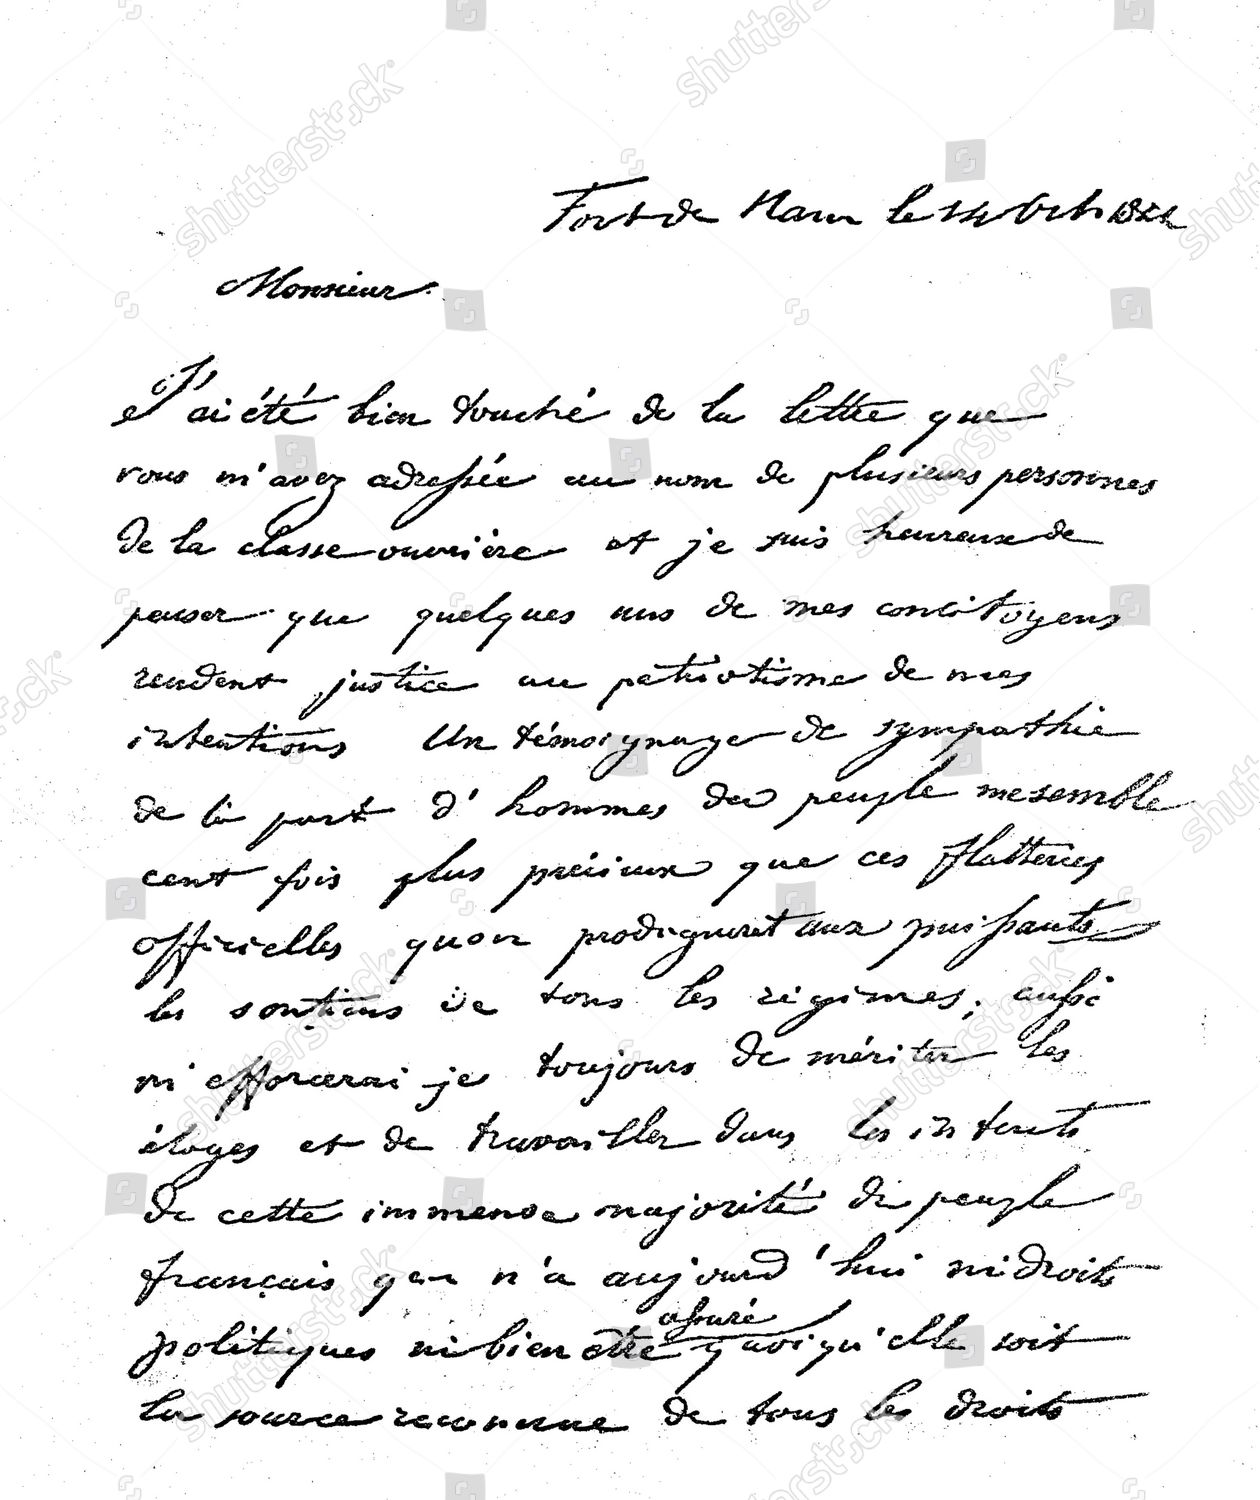 Fort de Ham le 14 Oct. 1844
Monsieur
J'ai été bien touché de la lettre que
vous m'avez adressée au nom de plusieurs personnes
de la classe ouvrière et je suis heureux de
penser que quelques uns de mes concitoyens
rendent justice au patriotisme de mes
intentions Un témoignage de sympathie
de la part d'hommes du peuple me semble
cent fois plus précieux que ces flatteries
officielles que prodiguent aux puissants
les soutiens de tous les régimes; aussi
m'efforcerai je toujours de mériter les
éloges et de travailler dans les intérets
de cette immense majorité du peuple
français qui n'a aujourd'hui ni droits
assuré
politiques ni bien être quoiqu'elle soit
la source reconnue de tous les droits